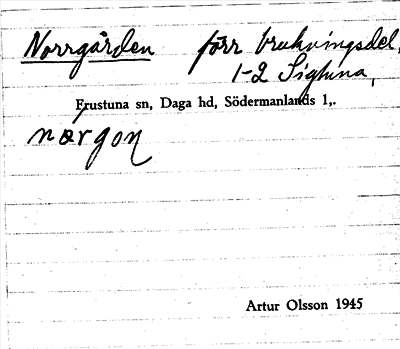 Norrgården förr brukningsdel,
1-2 Sigtuna,
Frustuna sn, Daga hd, Södermanlands l,.
nørgon
Artur Olsson 1945